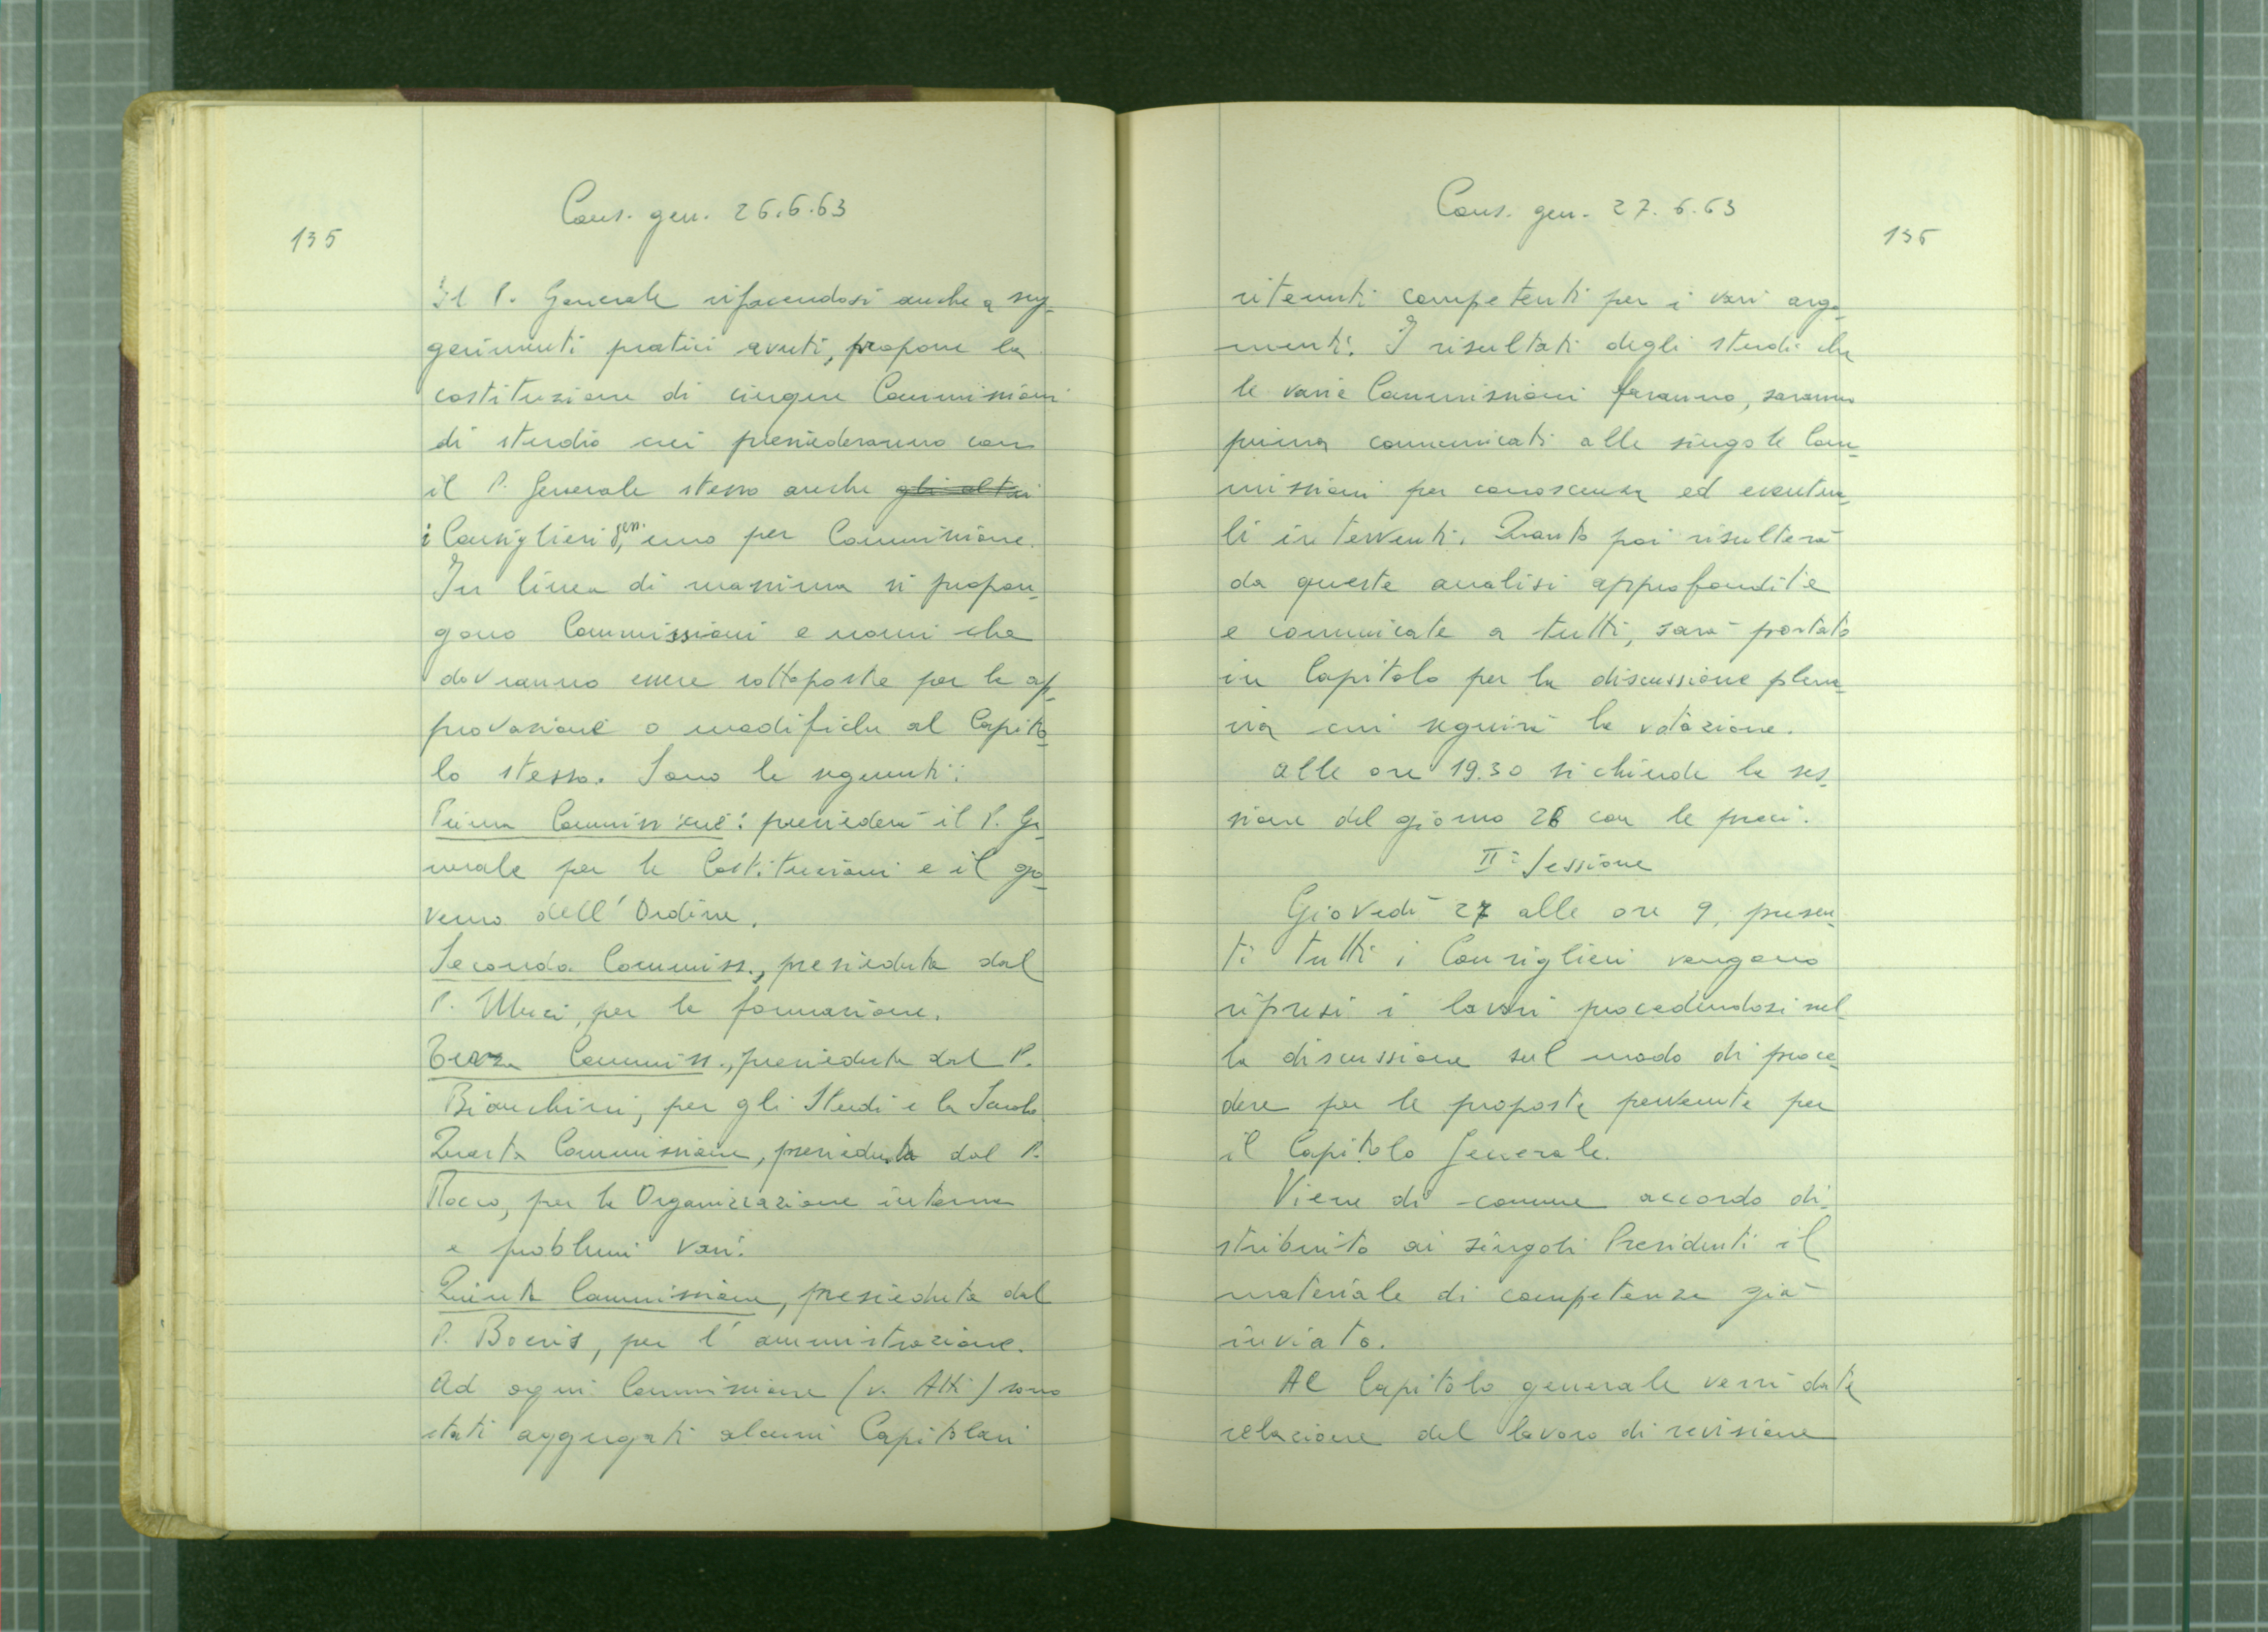 135
Cons. gen. 26.6.63
Il P. Generale rifacendosi anche a sug-
gerimenti pratici avuti, propone la
costituzione di cinque Commissioni
di studio cui presiederanno con
il P. Generale stesso anche gli altri
i Consiglieri gen., uno per Commissione.
In linea di massima si propon-
gono Commissioni e nomi che
dovranno essere sottoposte per la ap-
provazione o modifiche al Capito-
lo stesso. Sono le seguenti:
Prima Commissione: presiederà il P. Ge-
nerale per le Costituzioni e il go-
verno dell'Ordine.
Seconda Commiss., presieduta dal
P. Muci, per la formazione.
Terza Commiss., presieduta dal P.
Bianchini, per gli Studi e la Scuola
Quarta Commissione, presieduta dal P.
Rocco, per la Organizzazione interna
e problemi vari.
Quinta Commissione, presieduta dal
P. Boeris, per l'amministrazione.
Ad ogni Commissione (v. Atti) sono
stati aggregati alcuni Capitolari
Cons. gen. 27.6.63
136
ritenuti competenti per i vari argo-
menti. I risultati degli studi che
le varie Commissioni faranno, saranno
prima comunicati alle singole Com-
missioni per conoscenza ed eventua-
li interventi. Quanto poi risulterà
da queste analisi approfondite
e comunicate a tutti, sarà portato
in Capitolo per la discussione plena-
ria cui seguirà la votazione.
Alle ore 19.30 si chiude la ses-
sione del giorno 26 con le preci.
IIª Sessione
Giovedì 27 alle ore 9, presen-
ti tutti i Consiglieri vengono
ripresi i lavori procedendosi nel-
la discussione sul modo di proce-
dere per le proposte pervenute per
il Capitolo Generale.
Viene di comune accordo di-
stribuito ai singoli Presidenti il
materiale di competenza già
inviato.
Al Capitolo generale verrà data
relazione del lavoro di revisione